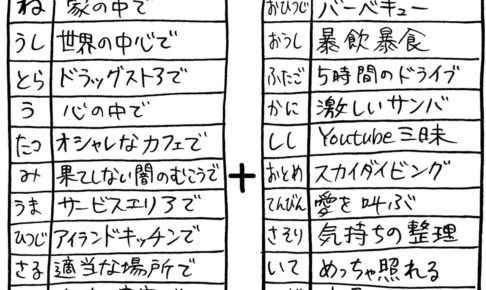 ね 家の中で
うし 世界の中心で
とら ドラッグストアで
う 心の中で
たつ オシャレなカフェで
み 果てしない闇のむこうで
うま サービスエリアで
ひつじ アイランドキッチンで
さる 適当な場所で
+
おひつじ バーベキュー
おうし 暴飲暴食
ふたご 5時間のドライブ
かに 激しいサンバ
しし Youtube三昧
おとめ スカイダイビング
てんびん 愛を叫ぶ
さそり 気持ちの整理
いて めっちゃ照れる